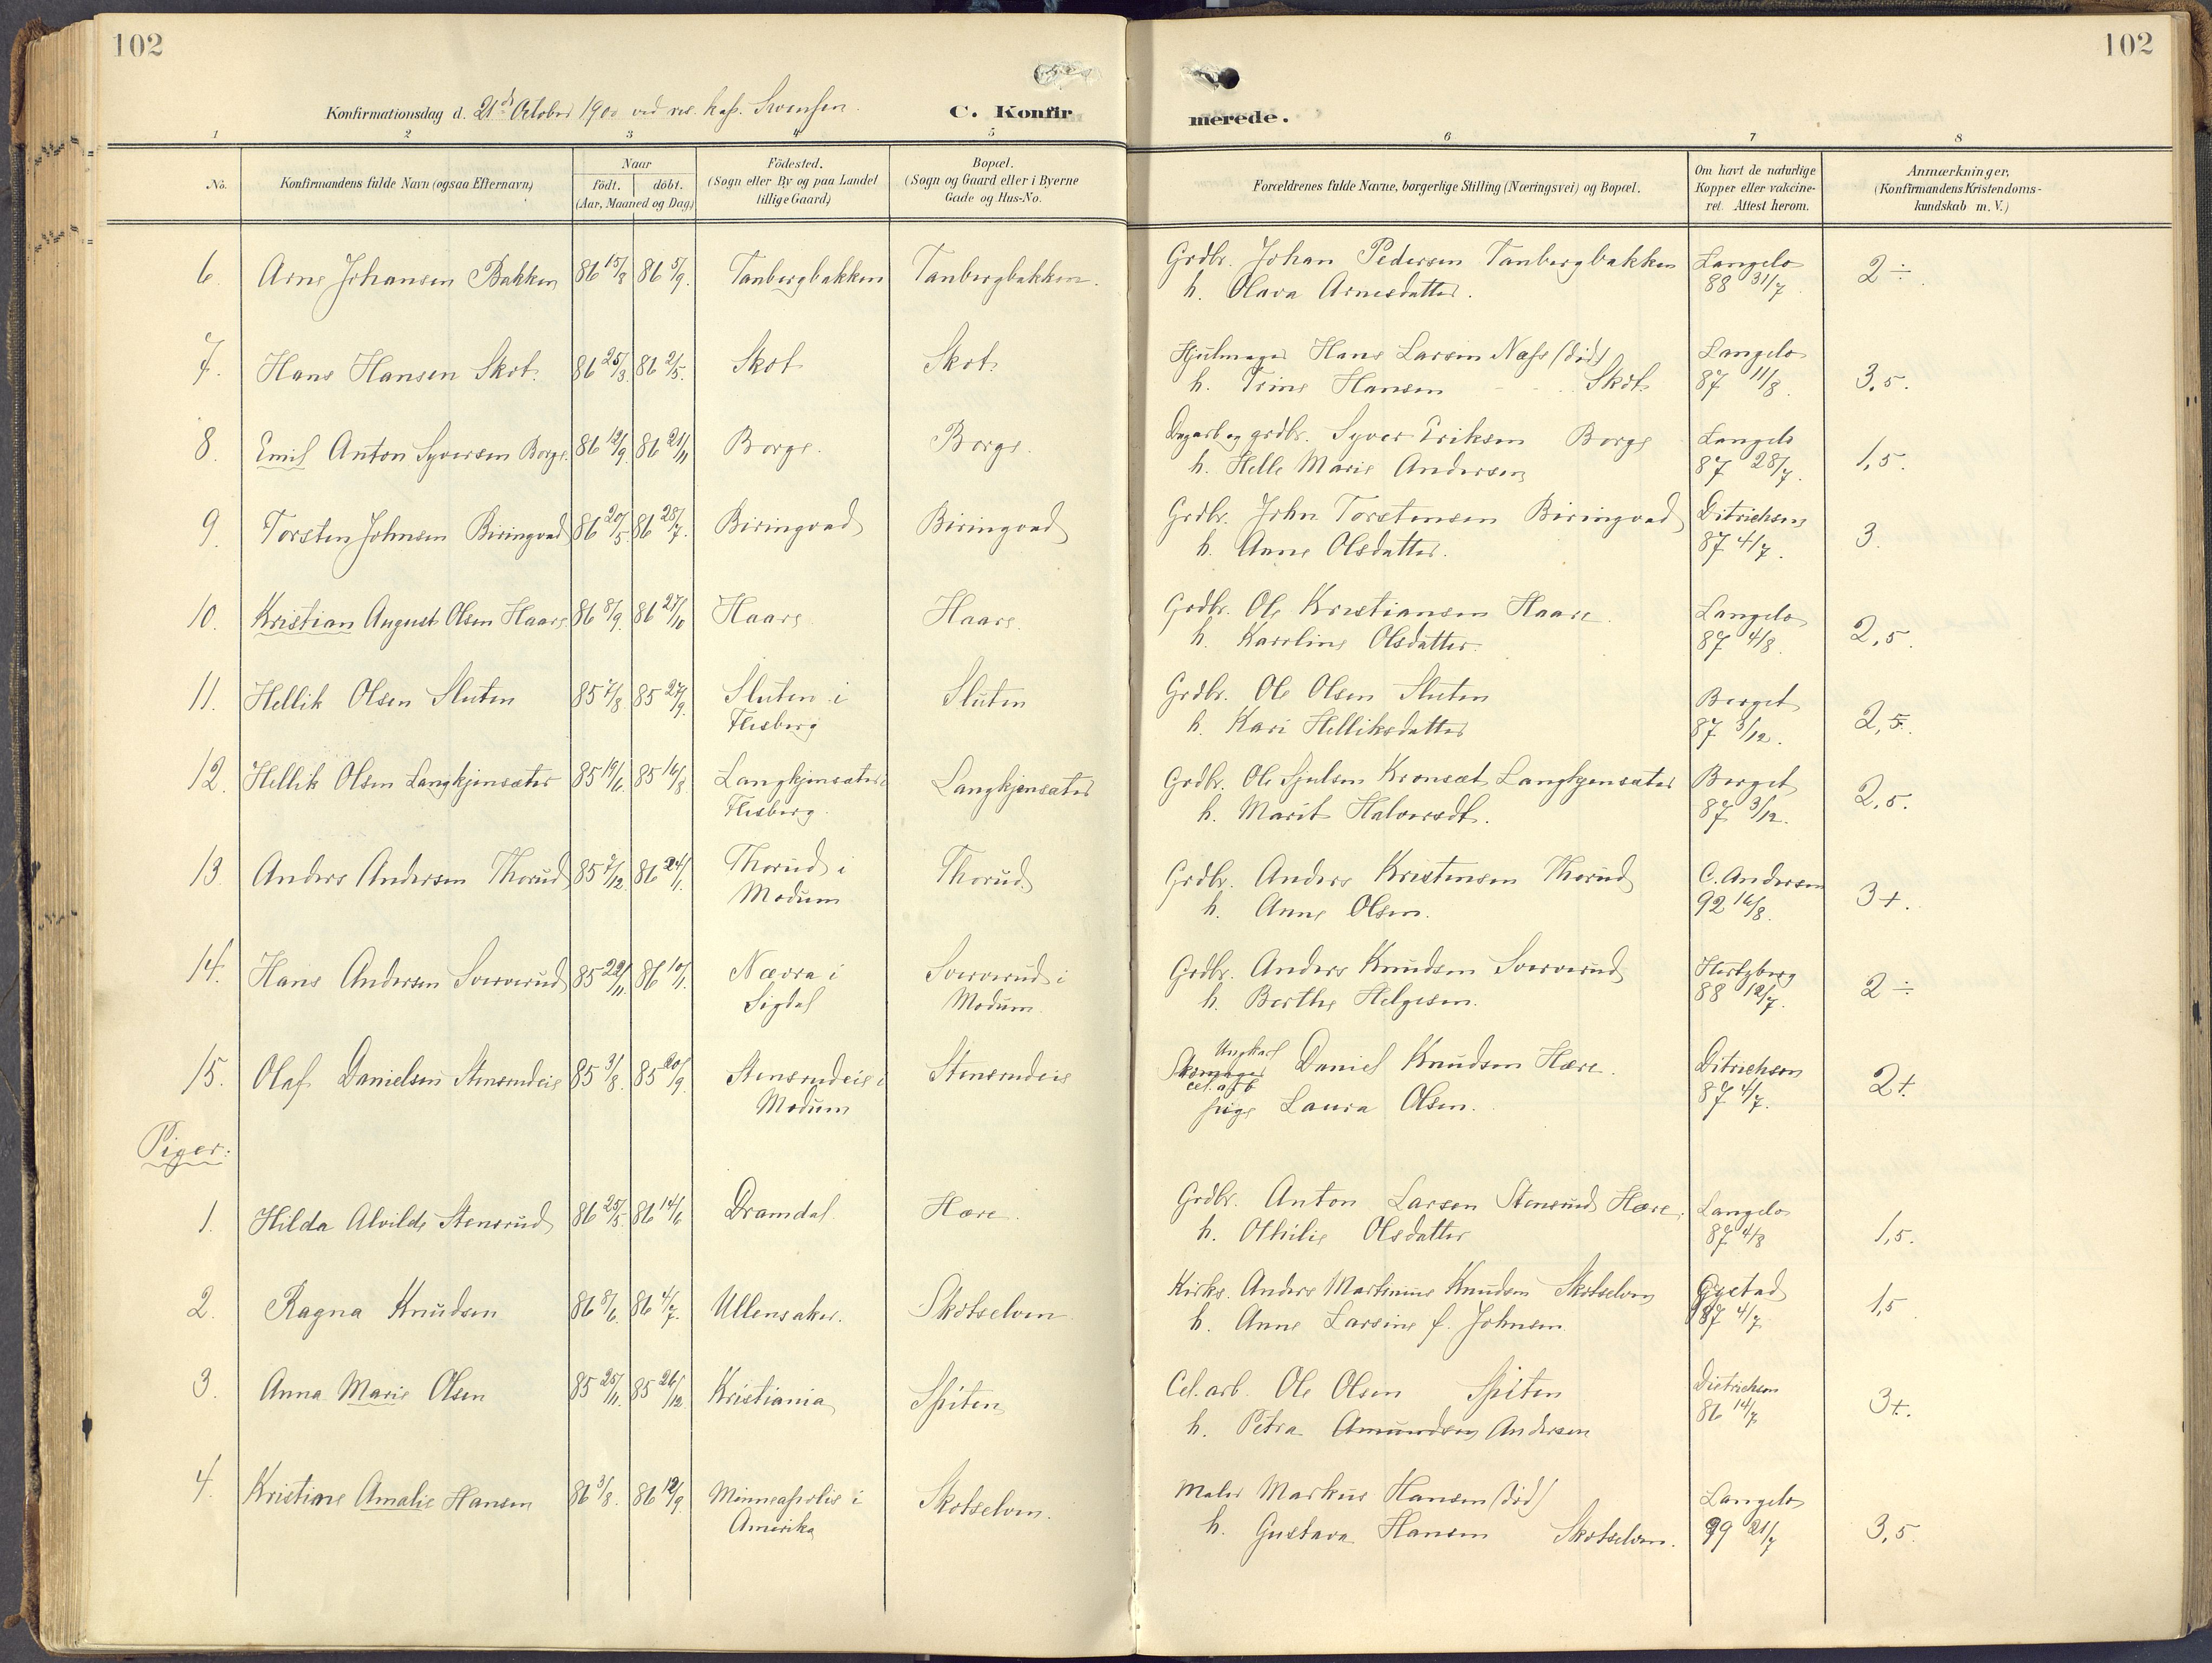 102
102
Konfirmationsdag d. 21de October 1900 ved res. kap. Svensen.
C. Konfirmerede.
1 2 3 4 5 6 7 8
No.
Konfirmandens fulde Navn (ogsaa Efternavn)
Naar
födt. döbt.
(Aar, Maaned og Dag)
Födested.
(Sogn eller By og paa Landet
tillige Gaard)
Bopæl.
(Sogn og Gaard eller i Byerne
Gade og Hus-No.
Forældrenes fulde Navne, borgerlige Stilling (Næringsvei) og Bopæl.
Om havt de naturlige
Kopper eller vakcine-
ret. Attest herom.
Anmærkninger,
(Konfirmandens Kristendoms-
kundskab m. V.)
6. Arne Johansen Bakken 86 15/8 86 5/9. Tanbergbakken Tanbergbakken. Grdbr. Johan Pedersen Tanbergbakken Langelo 2 ÷
h. Olava Arnesdatter. 88 31/7
7. Hans Hansen Skot. 86 25/3. 86 2/5. Skot Skot Hjulmager Hans Larsen Næss (död) Langelo
h. Trine Hansen Skot 87 11/8. 3,5.
8. Emil Anton Syversen Borge. 86 12/9. 86 21/11 Borge. Borge. Dagarb og grdbr. Syver Eriksen Borge Langelo 1,5.
h. Helle Marie Andersen 87 28/7.
9. Torsten Johnsen Biringvad 86 20/5. 86 28/7. Biringvad Biringvad Grdbr. John Torstensen Biringvad Ditrichsen 3.
h. Anne Olsdatter. 87 4/7.
10. Kristian August Olsen Haare 86 8/9. 86 27/10 Haare Haare. Grdbr. Ole Kristiansen Haare. Langelo 2,5.
h. Karoline Olsdatter. 87 4/8.
11. Hellik Olsen Sluten 85 7/8. 85 27/9. Sluten i Sluten Grdbr. Ole Olsen Sluten Berget 2,5.
Flesberg h. Kari Helliksdatter 87 3/12.
12. Hellik Olsen Langkjensæter 85 19/6. 85 16/8. Langkjensæter i Langkjensæter Grdbr. Ole Sjulsen Kronsæt Langkjensæter Berget 2,5.
Flesberg. h. Marit Halvorsdt. 87 3/12.
13. Anders Andersen Thorud 85 7/12. 86 24/1. Thorud i Thorud Grdbr. Anders Kristensen Thorud C. Andersen 3+.
Modum h. Anne Olsen. 92 16/8.
14. Hans Andersen Sververud 85 22/11. 86 10/1. Nævra i Sververud i Grdbr. Anders Knudsen Sververud Hertzberg 2 ÷
Sigdal Modum. h. Berthe Helgesen. 88 12/7.
15. Olaf Danielsen Stensrudeie 85 3/8. 85 20/9. Stensrudeie i Stensrudeie Ungkarl Daniel Knudsen Hære. Ditrichsen 2+.
Modum Skomager cel. arb 87 4/7.
pige Laura Olsen.
Piger:
1. Hilda Alvilde Stensrud 86 25/5. 86 14/6 Dramdal. Hære. Grdbr. Anton Larsen Stensrud Hære. Langelo 1,5.
h. Othilie Olsdatter 87 4/8
2. Ragna Knudsen 86 8/6. 86 4/7. Ullensaker. Skotselven. Kirks. Anders Martinius Knudsen Skotselven Gystad 1,5
h. Anne Larsine f. Johnsen 87 4/7
3. Anna Marie Olsen 85 25/11. 85 26/12 Kristiania Spiten Cel. arb. Ole Olsen Spiten Dietrichsen 3+.
h. Petra Amundsen Andersen 86 14/7
4. Kristine Amalie Hansen 86 3/8. 86 12/9. Minneapolis i Skotselven. Maler Markus Hansen (död) Langelo
Amerika h. Gustava Hansen Skotselven. 99 21/7 3,5.